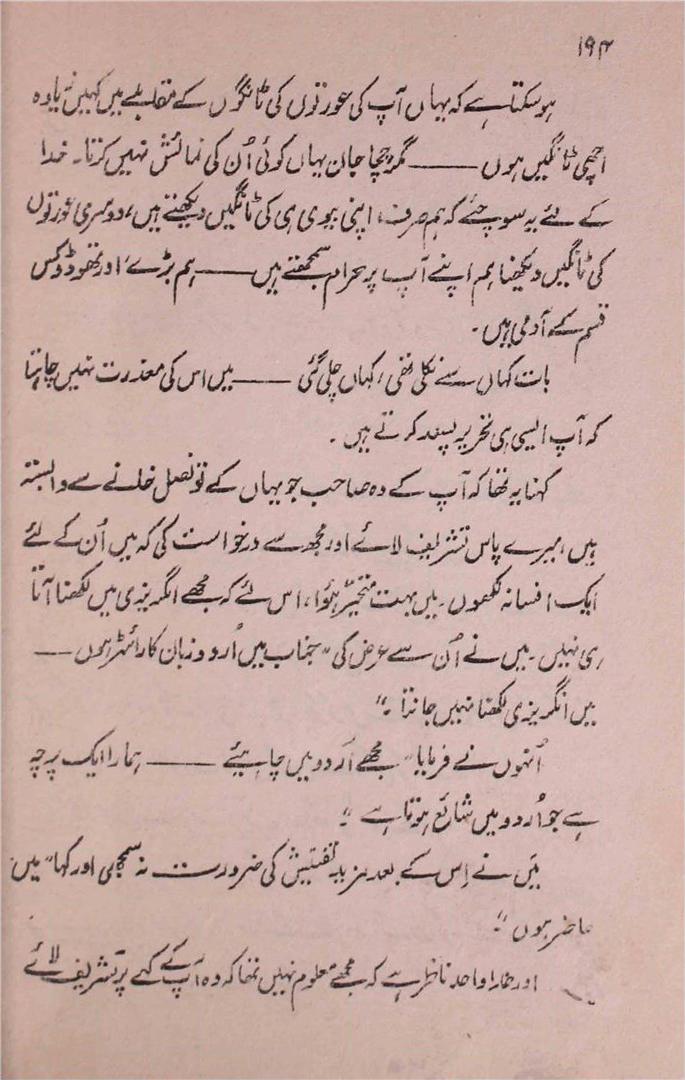 ۱۹۴
ہوسکتا ہے کہ یہاں آپ کی عورتوں کی ٹانگوں کے مقابلے میں کہیں زیادہ
اچھی ٹانگیں ہوں —— مگر چچا جان یہاں کوئی اُن کی نمائش نہیں کرتا۔ خدا
کے لئے یہ سوچئے کہ ہم صرف، اپنی بیوی ہی کی ٹانگیں دیکھتے ہیں، دوسری عورتوں
کی ٹانگیں دیکھنا ہم اپنے آپ پر حرام سمجھتے ہیں —— ہم بڑے اورتھوڈوکس
قسم کے آدمی ہیں۔
بات کہاں سے نکلی تھی، کہاں چلی گئی —— میں اس کی معذرت نہیں چاہتا
کہ آپ ایسی ہی تحریر پسند کرتے ہیں۔
کہنا یہ تھا کہ آپ کے وہ صاحب جو یہاں کے قونصل خانے سے وابستہ
ہیں، میرے پاس تشریف لائے اور مجھ سے درخواست کی کہ میں اُن کے لئے
ایک افسانہ لکھوں۔ میں بہت متحیّر ہوُا، اس لئے کہ مجھے انگریزی میں لکھنا آتا
ہی نہیں۔ میں نے اُن سے عرض کی "جناب میں اُردو زبان کا رائٹر ہوں ——
میں انگریزی لکھنا نہیں جانتا۔"
اُنہوں نے فرمایا "مجھے اُردو میں چاہیئے —— ہمارا ایک پرچہ
ہے جو اُردو میں شائع ہوتا ہے"۔
میَں نے اِس کے بعد مزید تفتیش کی ضرورت نہ سمجھی اور کہا "میں
حاضر ہوں"۔
اور خدا واحد ناظر ہے کہ مجھے معلوم نہیں تھا کہ وہ آپ کے کہے پر تشریف لائے